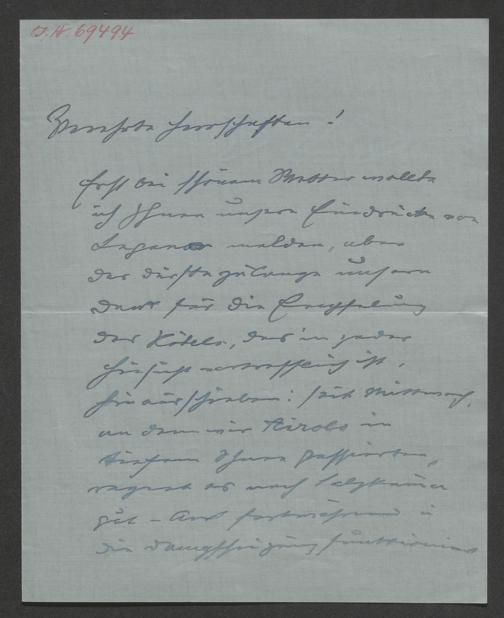 I.N. 69494
Verehrte Herrschaften!
Erst bei schönem Wetter wollte
ich Ihnen unsere Eindrücke von
Lugano melden, aber
das dürfte zu lange unsern
Dank für die Empfehlung
des Hôtels, das in jeder
Hinsicht vortrefflich ist,
hinausschieben: seit Mittwoch,
an dem wir Airolo in
tiefem Schnee passierten,
regnet es nach
gut – und fortwährend u
die Dampfheizung funktioniert